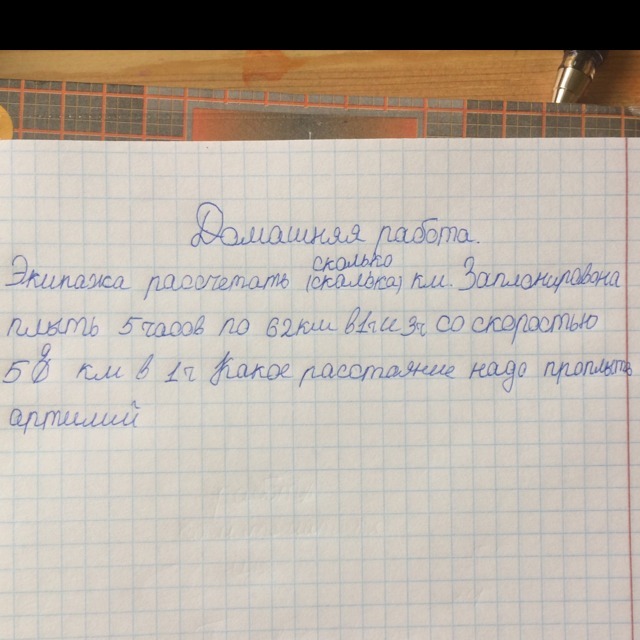 Домашняя работа.
сколько
Экипажа рассчетать (скалька) км. Запланировона
плыть 5 часов по 62 км в 1ч и 3ч со скоростью
58 км в 1ч Какое расстаяние надо проплыть
артимий